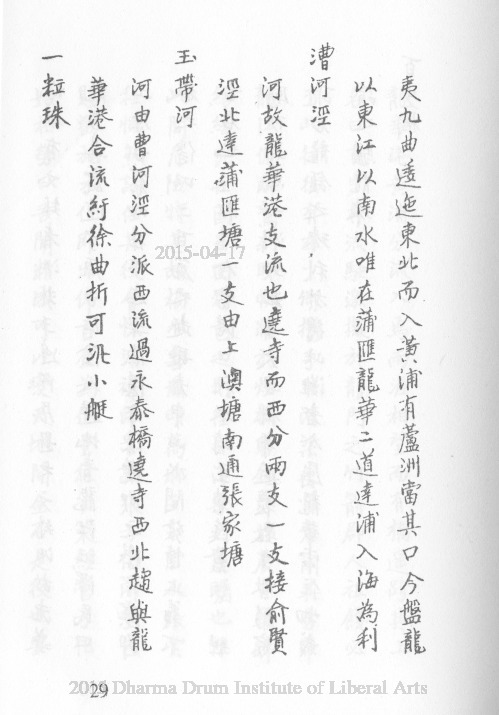 夷九曲逶迤東北而入黃浦有蘆洲當其口今盤龍
以東江以南水唯在蒲匯龍華二道達浦入海為利
漕河涇
河故龍華港支流也遶寺而西分兩支一支接俞賢
涇北達蒲匯塘一支由上澳塘南通張家塘
玉帶河
河由曹河涇分派西流過永泰橋遶寺西北趨與龍
華港合流紆徐曲折可汎小艇
一粒珠
2015-04-17
29
2015 Dharma Drum Institute of Liberal Arts